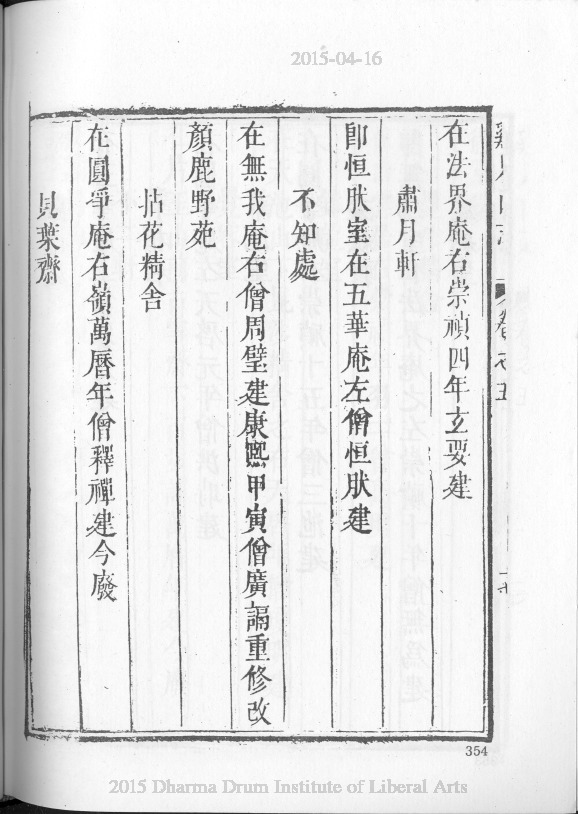 2015-04-16
在法界庵右崇禎四年玄要建
肅月軒
即恒肰室在五華庵左僧恒肰建
不知處
在無我庵右僧周璧建康熈甲寅僧廣謆重修改
顏鹿野苑
拈花精舍
在圓爭庵右嶺萬曆年僧釋禪建今廢
貝葉齋
354
2015 Dharma Drum Institute of Liberal Arts